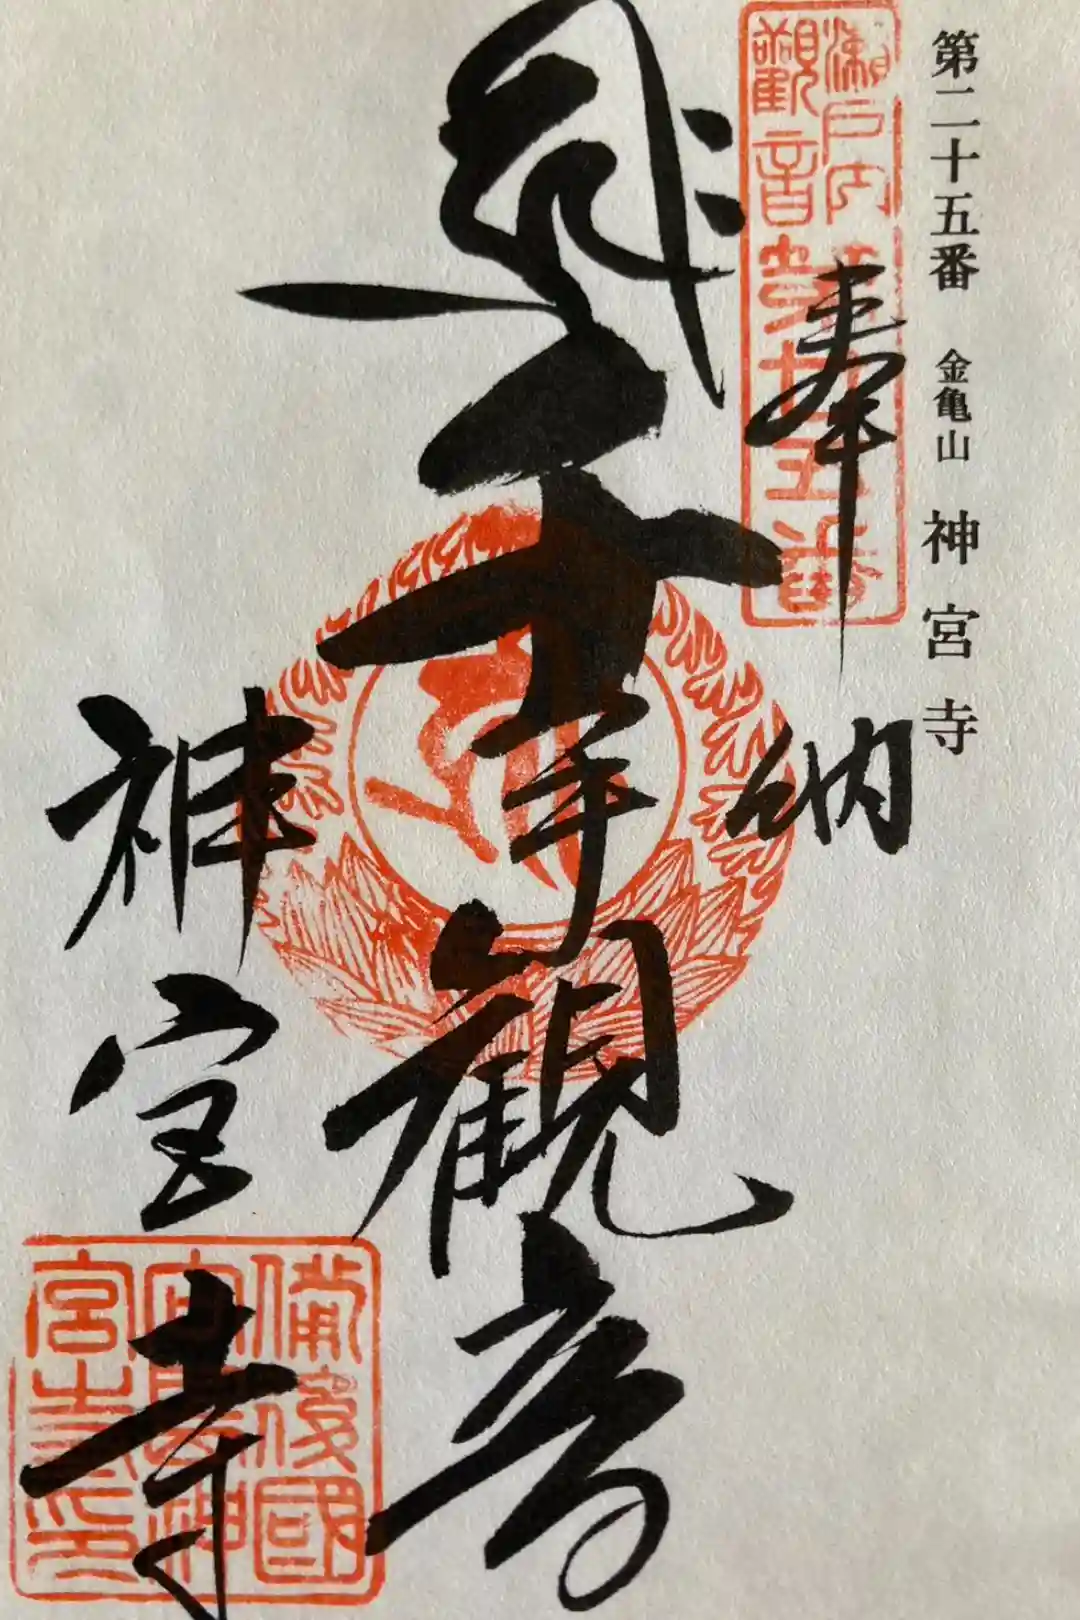 第二十五番 金亀山 神宮寺
瀬戸内
觀音
第廿五番
奉納
千手観音
神宮寺
備後國
神
宮寺印